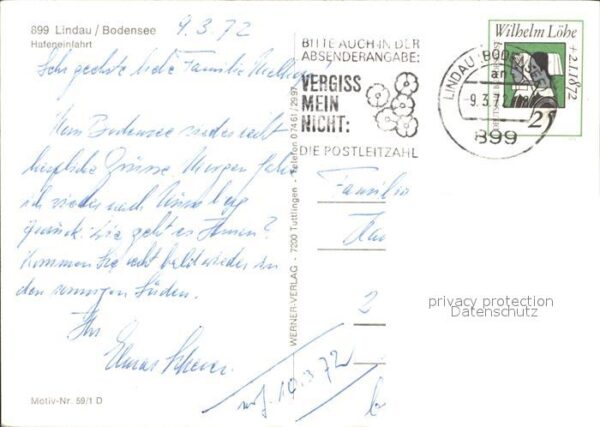 899 Lindau / Bodensee
Hafeneinfahrt
9.3.72
Sehr geehrte liebe Familie
Vom Bodensee wieder recht
herzliche Grüsse. Morgen fahre
ich wieder nach Nürnberg
zurück. Wie geht es Ihnen?
Kommen Sie recht bald wieder in
den sonnigen Süden.
Ihr
Motiv-Nr. 59/1 D
WERNER-VERLAG - 7200 Tuttlingen - Telefon 07461/2997
BITTE AUCH IN DER
ABSENDERANGABE:
VERGISS
MEIN
NICHT:
DIE POSTLEITZAHL
LINDAU (BODENSEE)
an
-9.3.72
899
Wilhelm Löhe
+ 2.1.1872
25
Familie
2
privacy protection
Datenschutz
10.3.72